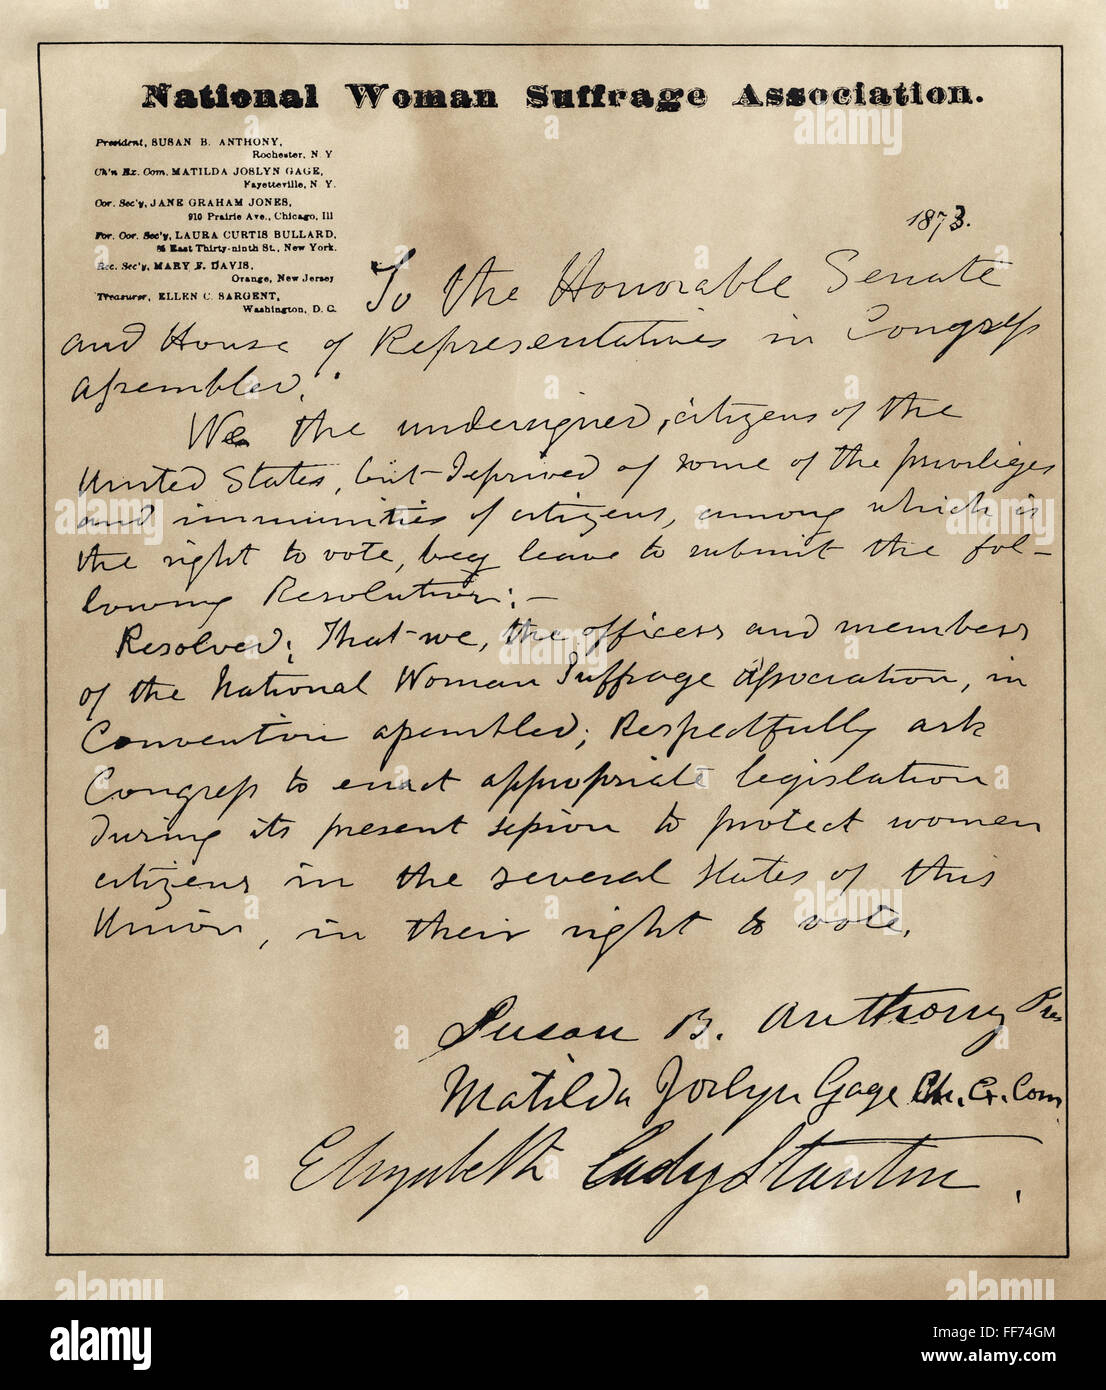 National Woman Suffrage Association.
President, SUSAN B. ANTHONY,
Rochester, N. Y
Ch'n Ex. Com. MATILDA JOSLYN GAGE,
Fayetteville, N. Y.
Cor. Sec'y, JANE GRAHAM JONES,
910 Prairie Ave., Chicago, Ill
For. Cor. Sec'y, LAURA CURTIS BULLARD,
East Thirty-ninth St., New York.
Rec. Sec'y, MARY F. DAVIS,
Orange, New Jersey
Treasurer, ELLEN C. SARGENT,
Washington, D. C.
1873.
To the Honorable Senate
and House of Representatives in Congress
assembled:
We the undersigned, citizens of the
United States, but deprived of some of the privileges
and immunities of citizens, among which is
the right to vote, beg leave to submit the fol-
lowing Resolution:-
Resolved; That we, the officers and members
of the National Woman Suffrage Association, in
Convention assembled; Respectfully ask
Congress to enact appropriate legislation
during its present session to protect women
citizens in the several States of this
Union, in their right to vote.
Susan B. Anthony Pres
Matilda Joslyn Gage Ch. Ex. Com
Elizabeth Cady Stanton.
alamy
alamy stock photo
FF74GM
www.alamy.com